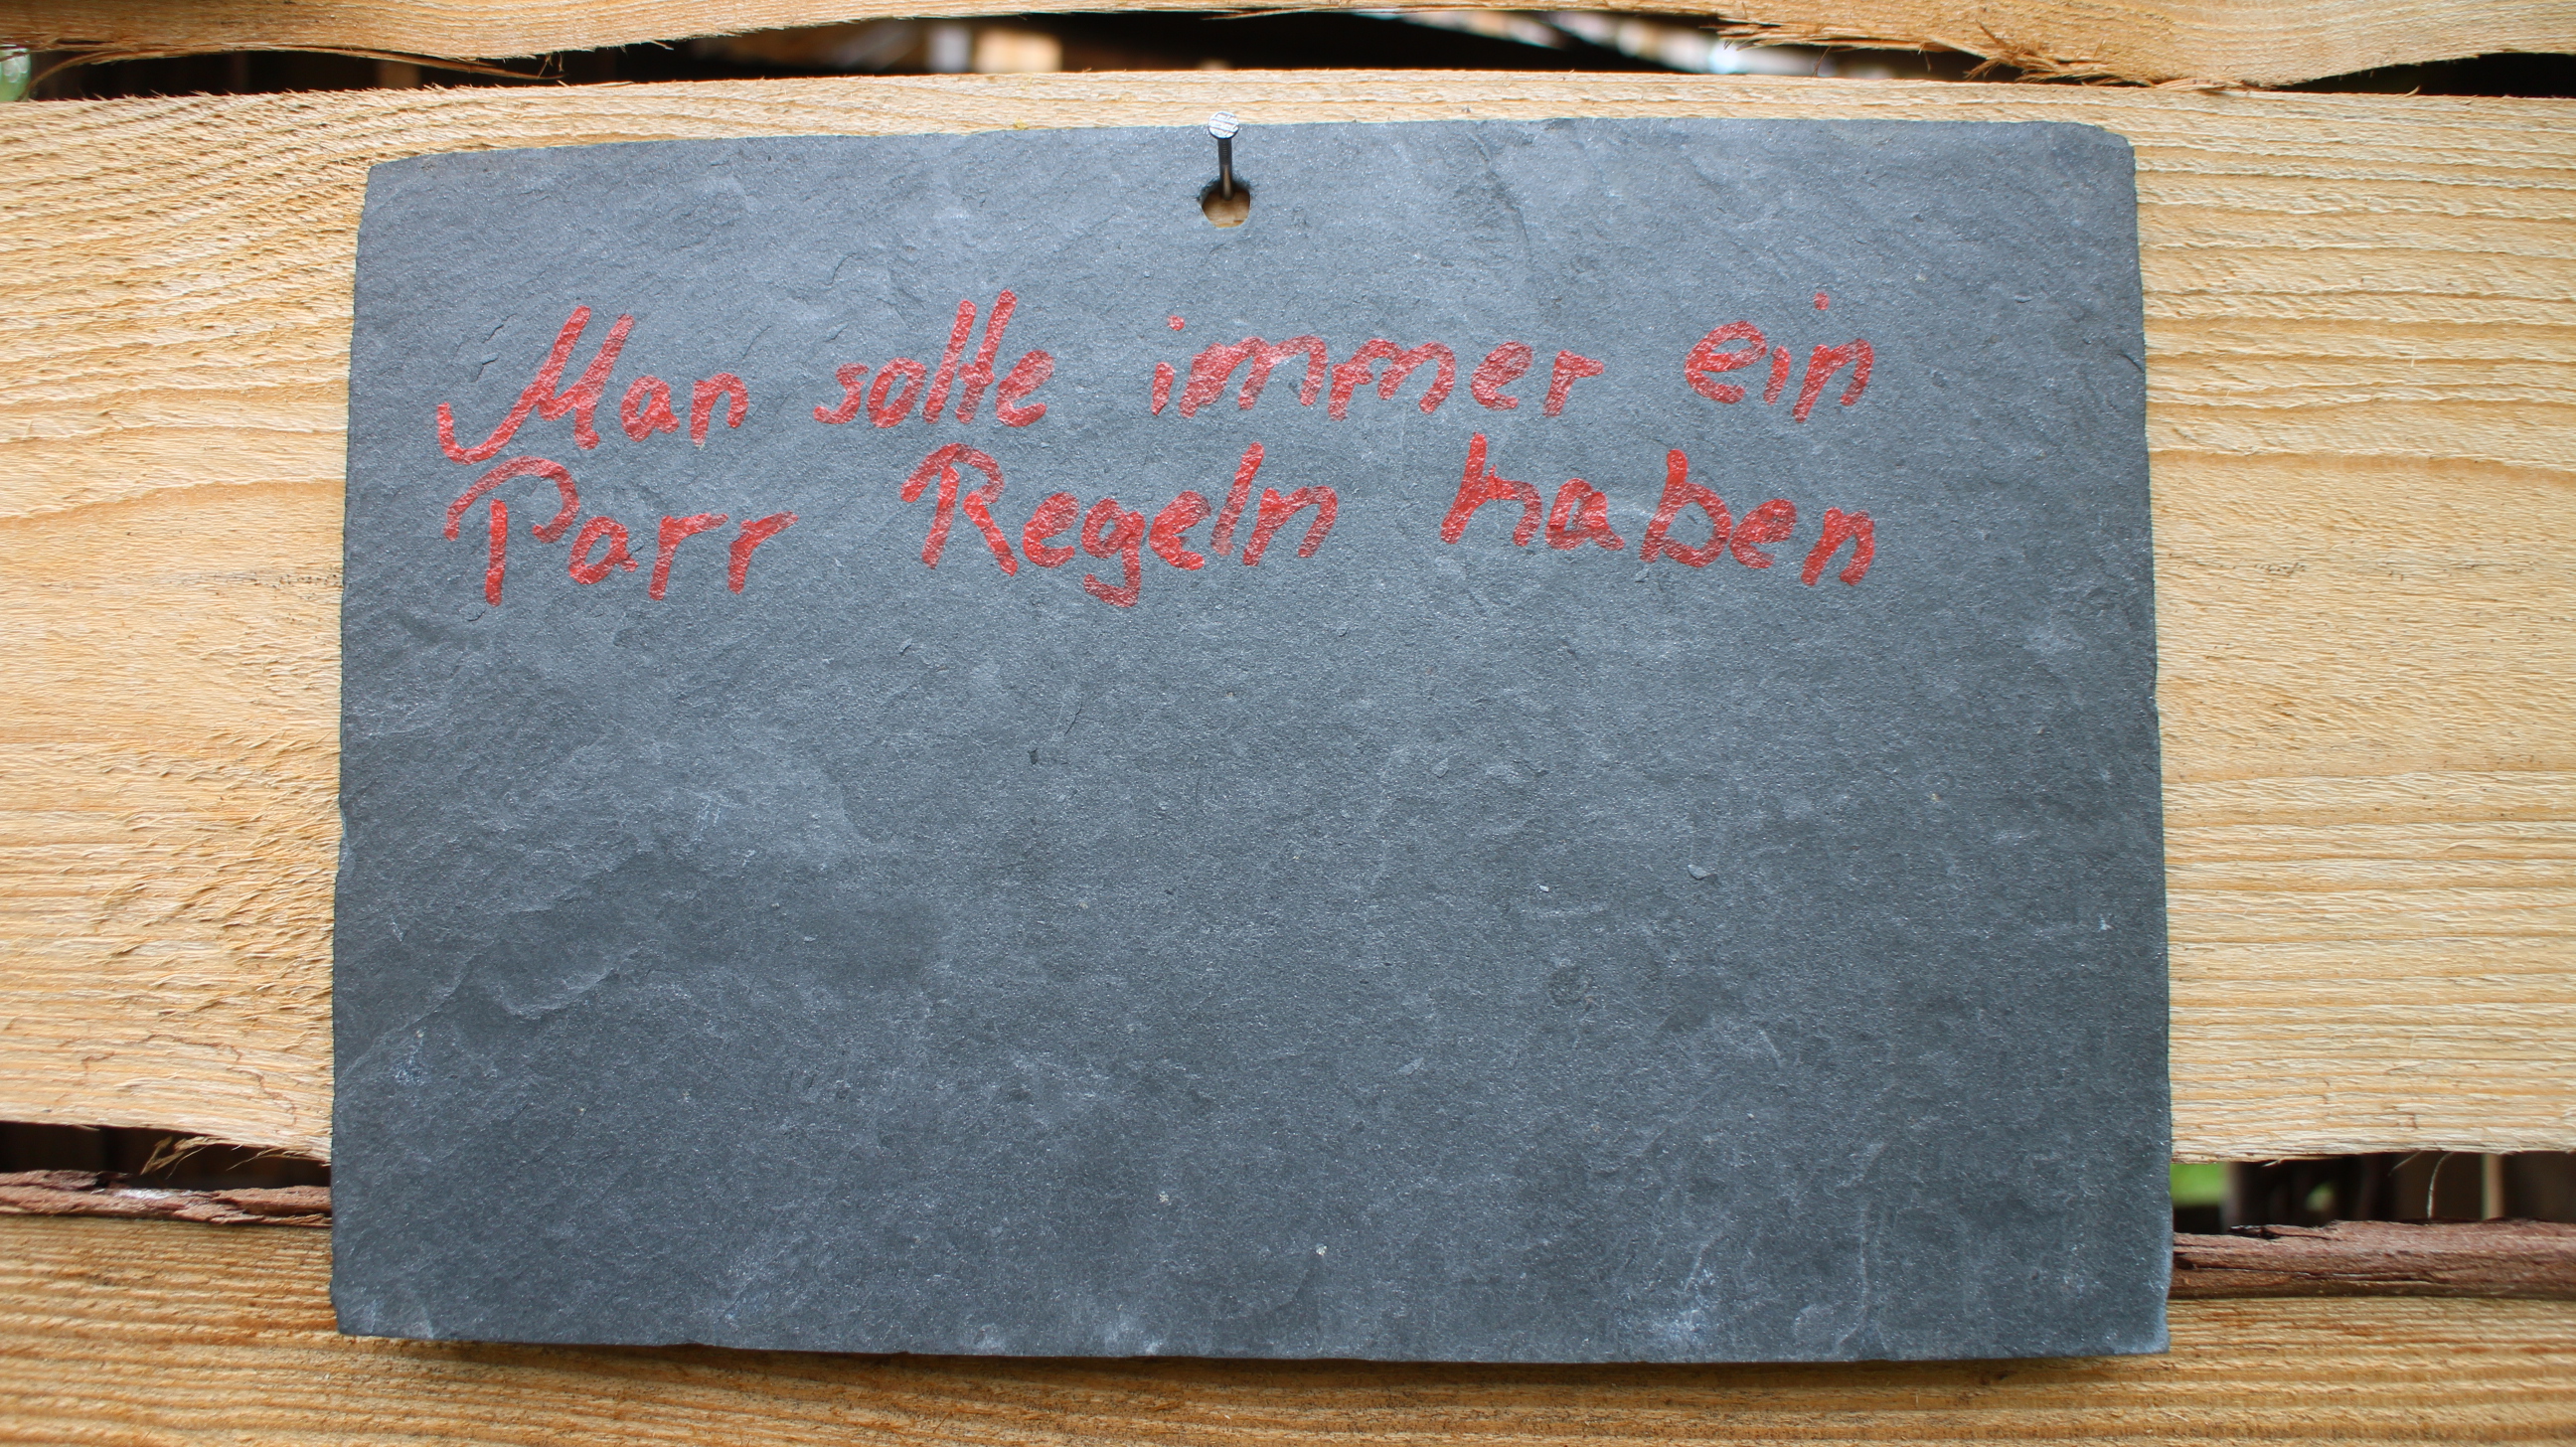 Man solte immer ein
Parr Regeln haben